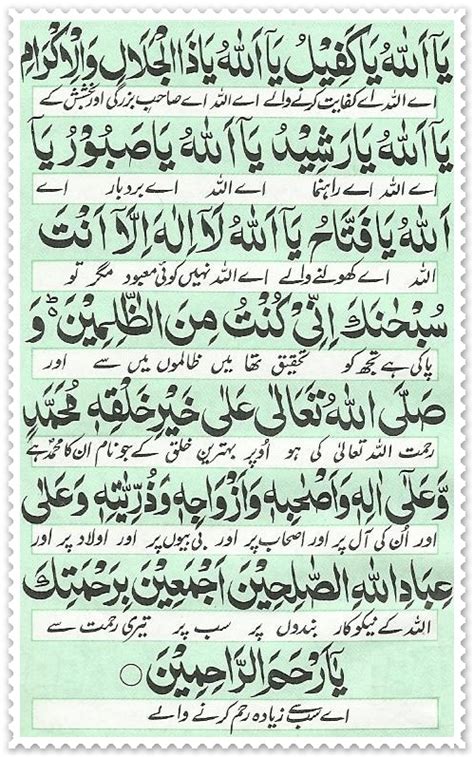 يَآ اَللّٰهُ يَا كَفِيْلُ يَآ اَللّٰهُ يَا ذَا الْجَلَالِ وَالْاِكْرَامِ
اے اللہ اے کفایت کرنے والے اے اللہ اے صاحب بزرگی اور بخشش کے
يَآ اَللّٰهُ يَا رَشِيْدُ يَآ اَللّٰهُ يَا صَبُوْرُ يَآ
اے اللہ اے راہنما اے اللہ اے بردبار اے
اَللّٰهُ يَا فَتَّاحُ يَآ اَللّٰهُ لَآ اِلٰهَ اِلَّآ اَنْتَ
اللہ اے کھولنے والے اے اللہ نہیں کوئی معبود مگر تو
سُبْحٰنَكَ اِنِّيْ كُنْتُ مِنَ الظّٰلِمِيْنَ ؕ وَ
پاکی ہے تجھ کو تحقیق تھا میں ظالموں میں سے اور
صَلَّى اللّٰهُ تَعَالٰى عَلٰى خَيْرِ خَلْقِهٖ مُحَمَّدٍ
رحمت اللہ تعالیٰ کی ہو اُوپر بہترین خلق کے جو نام ان کا محمدؐ ہے
وَّعَلٰٓى اٰلِهٖ وَاَصْحٰبِهٖ وَاَزْوَاجِهٖ وَذُرِّيّٰتِهٖ وَعَلٰى
اور اُن کی آل پر اور اصحاب پر اور بی بیوں پر اور اولاد پر اور
عِبَادِ اللّٰهِ الصّٰلِحِيْنَ اَجْمَعِيْنَ بِرَحْمَتِكَ
اللہ کے نیکوکار بندوں پر سب پر تیری رحمت سے
يَآ اَرْحَمَ الرَّاحِمِيْنَ ○
اے سب سے زیادہ رحم کرنے والے